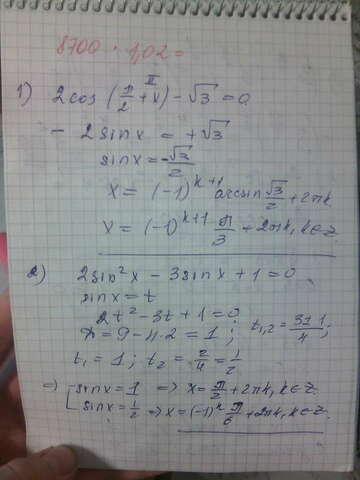 8700 · 1,02 =
1) 2cos (π/2 + x) - √3 = 0
II
- 2 sinx = +√3
sinx = -√3/2
x = (-1)^k+1 arcsin √3/2 + 2πk
x = (-1)^k+1 π/3 + 2πk, k∈Z.
2) 2sin²x - 3sinx + 1 = 0
sinx = t
2t² - 3t + 1 = 0
D = 9 - 4·2 = 1 ; t1,2 = 3±1/4 ;
t1 = 1 ; t2 = 2/4 = 1/2
=> [ sinx = 1 => x = π/2 + 2πk, k∈Z.
sinx = 1/2 => x = (-1)^k π/6 + 2πk, k∈Z.